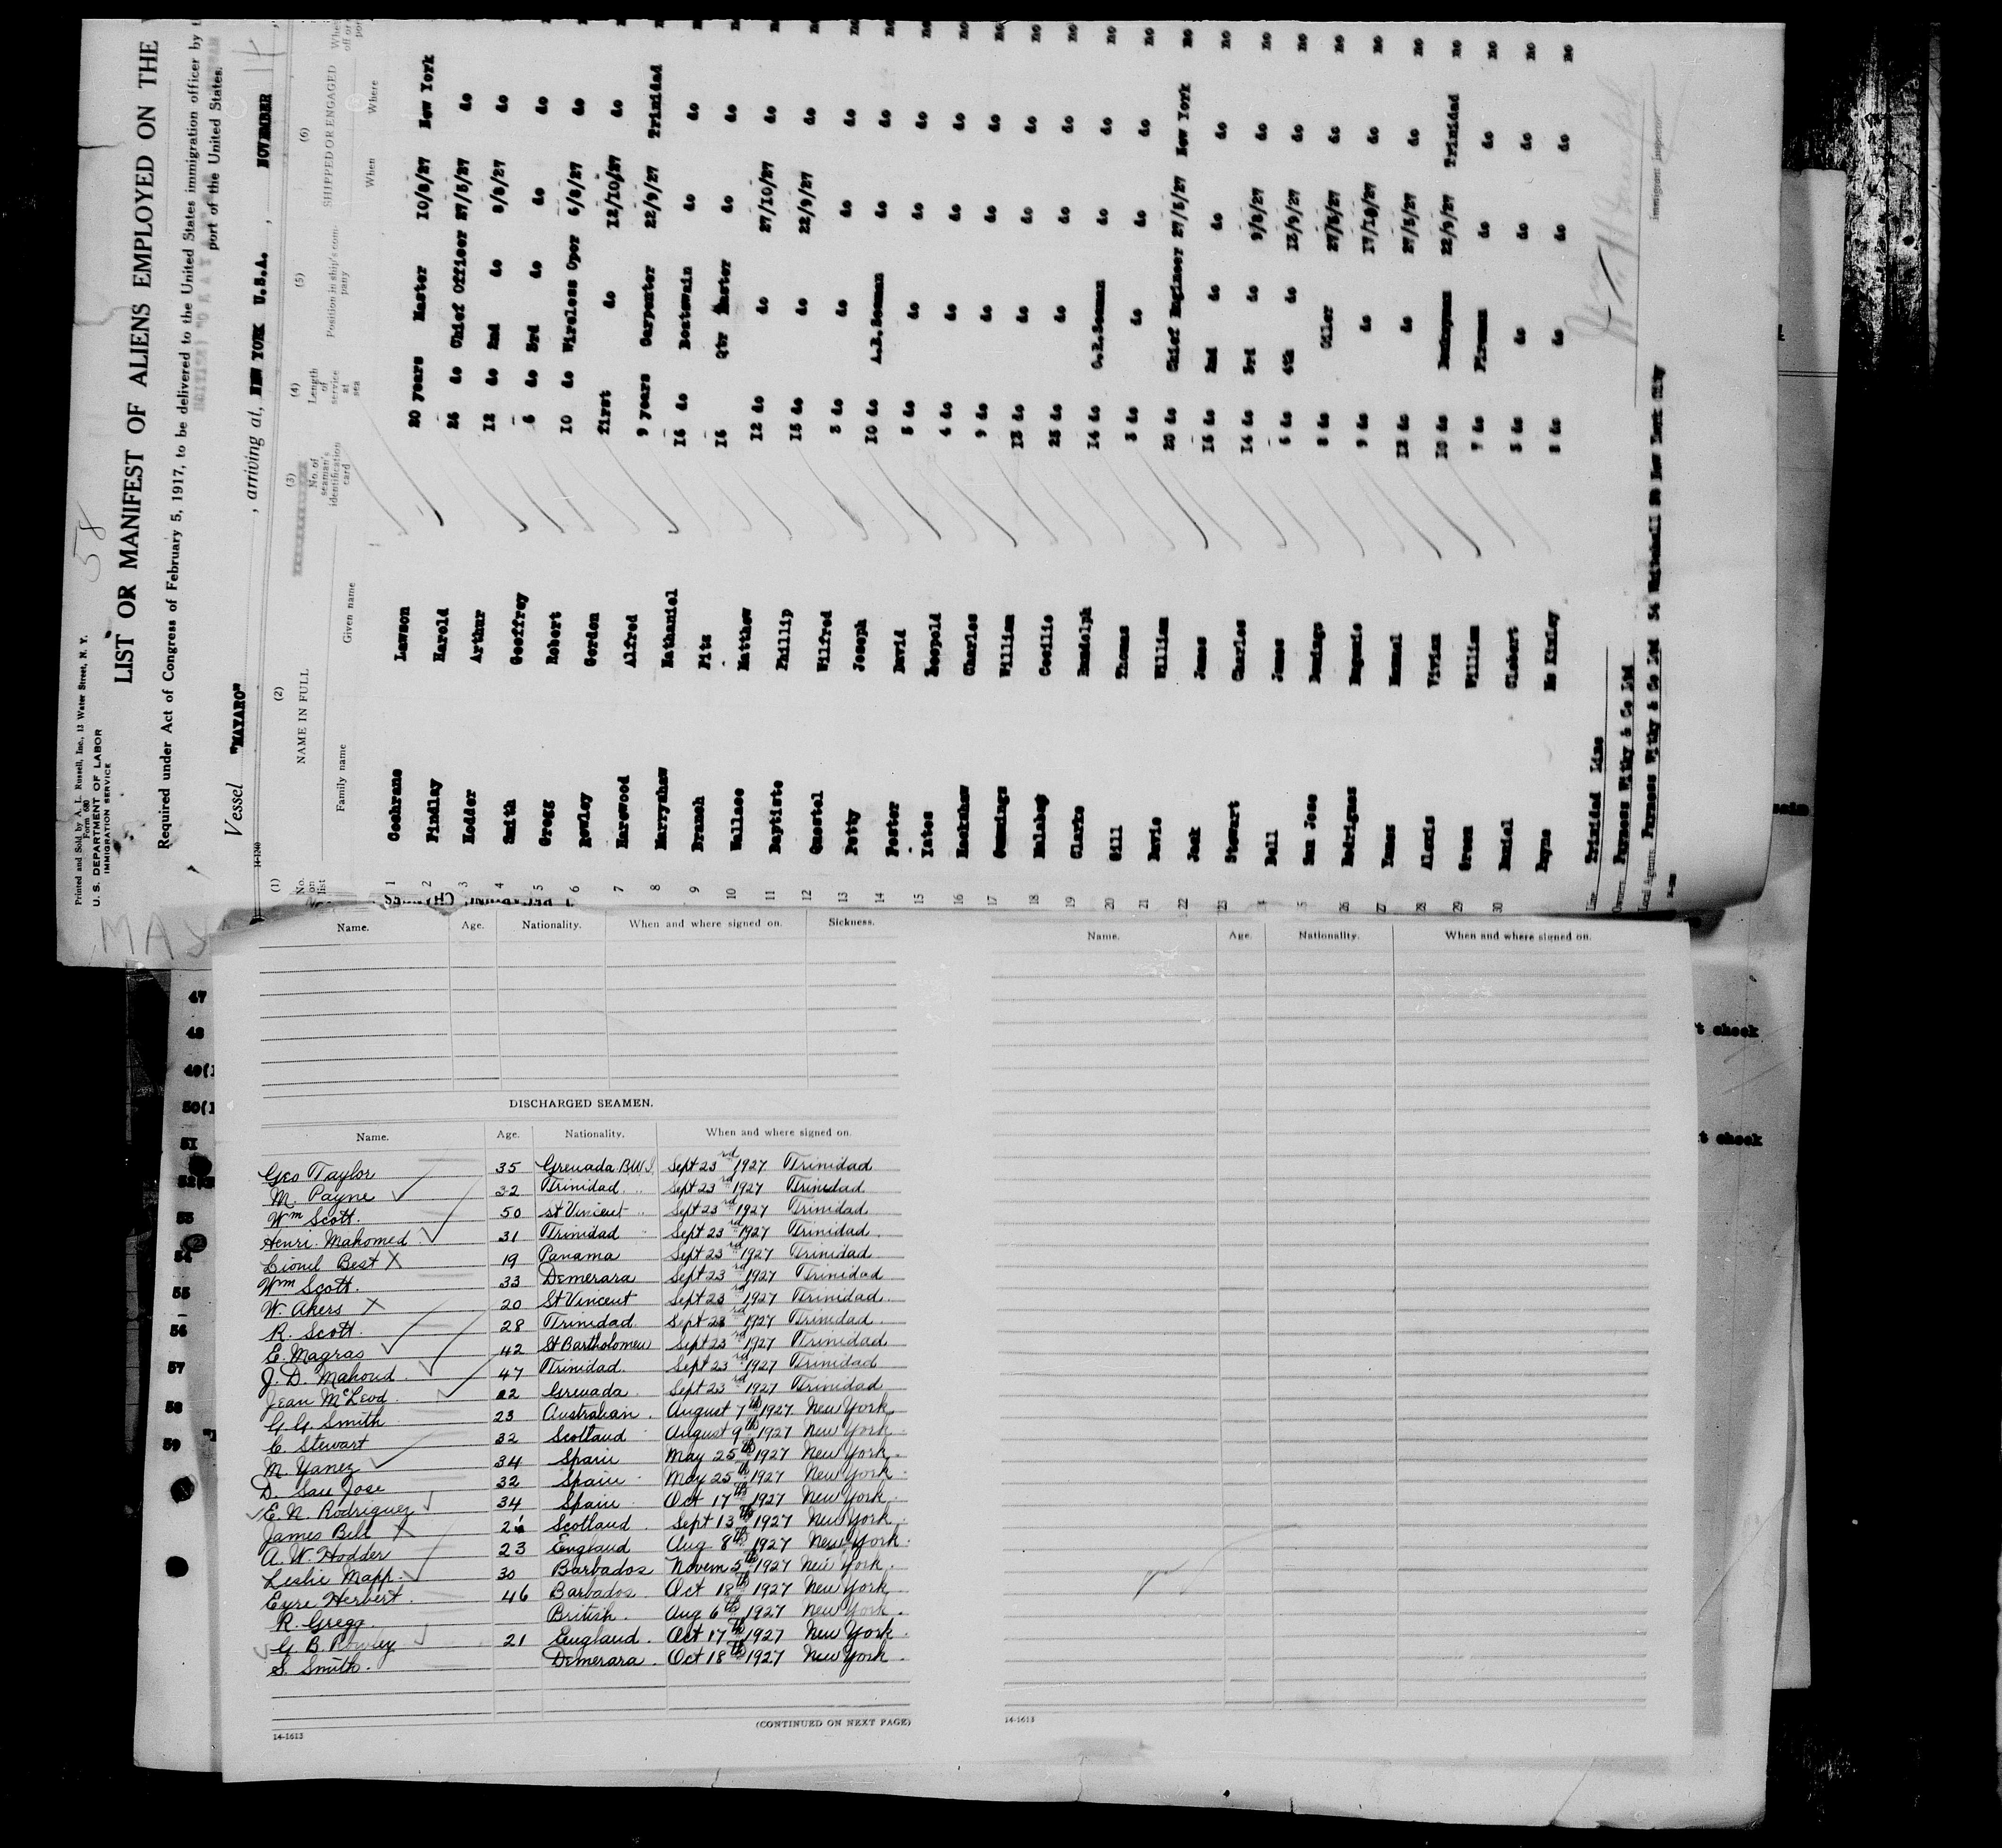 Printed and Sold by A. L. Russell, Inc., 13 Water Street, N. Y.
Form 680
U. S. DEPARTMENT OF LABOR
IMMIGRATION SERVICE
58
LIST OR MANIFEST OF ALIENS EMPLOYED ON THE
Required under Act of Congress of February 5, 1917, to be delivered to the United States immigration officer by
port of the United States.
Vessel "MAYARO" , arriving at, NEW YORK U.S.A. , NOVEMBER 14
14-1240
(1) (2) (3) (4) (5) (6)
No. on list NAME IN FULL No. of seaman's identification card Length of service at sea Position in ship's company SHIPPED OR ENGAGED
Family name Given name When Where
1 Cochrane Lawson 20 years Master 10/8/27 New York no
2 Findlay Harold 26 do Chief Officer 27/5/27 do
3 Hodder Arthur 12 do 2nd do 8/8/27 do
4 Smith Geoffrey 6 do 3rd do do do
5 Gregg Robert 10 do Wireless Oper 6/8/27 do
6 Rowley Gordon first do 12/10/27 do
7 Harewood Alfred 9 years Carpenter 22/9/27 Trinidad
8 Marryshaw Nathaniel 16 do Boatswain do do no
9 Branch Fitz 16 Qtr Master do do no
10 Wallace Matthew 12 do do 27/10/27 do no
11 Baptiste Phillip 15 do do 22/9/27 do no
12 Questel Wilfred 3 do do do do no
13 Petty Joseph 10 do A.B.Seaman do do no
14 Foster David 5 do do do do no
15 Yates Leopold 4 do do do do no
16 Charles 9 do do do do no
17 Cummings William 13 do do do do no
18 Cecilio 25 do do do do no
19 Clarke Randolph 14 do O.S.Seaman do do no
20 Gill Thomas 3 do do do do no
21 Davis William 20 do Chief Engineer 27/5/27 New York no
22 Jack James 16 do 2nd do do do no
23 Stewart Charles 14 do 3rd do 9/8/27 do no
Bell James 6 do 4th do 13/9/27 do no
San Jose Domingo 8 do Oiler do no
26 Rodriguez 9 do do 17/10/27 do no
27 Yanes Manuel 12 do do 27/5/27 do no
28 Alexis Vivian 10 do 22/9/27 Trinidad no
29 Green William 7 do Fireman do do no
30 Daniel do do do no
Payne Mc Kinley do do do no
Line Trinidad Line
Owners Furness Withy & Co Ltd
Local Agents Furness Withy & Co Ltd 34 Whitehall St New York City
Immigrant Inspector
MAY
47
48
49(1
50(1
51
53
54
55
56
57
58
59
t check
t check
Name. Age. Nationality. When and where signed on. Sickness.
DISCHARGED SEAMEN.
Name. Age. Nationality. When and where signed on.
Geo Taylor 35 Grenada BWI Sept 23rd 1927 Trinidad
M. Payne 32 Trinidad " Sept 23rd 1927 Trinidad
Wm Scott. 50 St Vincent " Sept 23rd 1927 Trinidad
Henri. Mahomed 31 Trinidad " Sept 23rd 1927 Trinidad
Lionel Best X 19 Panama Sept 23rd 1927 Trinidad
Wm Scott. 33 Demerara Sept 23rd 1927 Trinidad
W. Akers X 20 St Vincent Sept 23rd 1927 Trinidad.
R. Scott. 28 Trinidad. Sept 23rd 1927 Trinidad.
E. Magras 42 St Bartholomew Sept 23rd 1927 Trinidad
J. D. Mahoud. 47 Trinidad. Sept 23rd 1927 Trinidad
Jean McLeod. 22 Grenada. Sept 23rd 1927 Trinidad
G. G. Smith 23 Australian. August 7th 1927 New York
C Stewart 32 Scotland August 9th 1927 New York.
M. Yanez 34 Spain May 25th 1927 New York.
D. San Jose 32 Spain May 25th 1927 New York.
E. N. Rodriguez 34 Spain Oct 17th 1927 New York.
James Bell X Scotland. Sept 13th 1927 New York.
A. W. Hodder 23 England Aug 8th 1927 New York.
Leslie Mapp. 30 Barbados Novem 5th 1927 New York.
Eyre Herbert. 46 Barbados. Oct 18th 1927 New York
R. Gregg. British. Aug 6th 1927 New York.
G. B. Rowley 21 England. Oct 17th 1927 New York.
S. Smith. Demerara. Oct 18th 1927 New York.
14-1613 (CONTINUED ON NEXT PAGE)
Name. Age. Nationality. When and where signed on.
14-1613